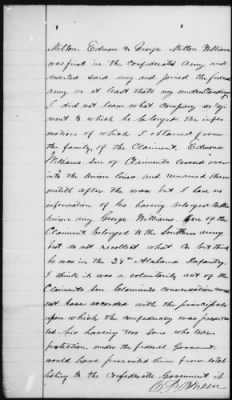 Milton, Edmon & George. Milton Williams
was first in the Confederate Army and
deserted said army and joined the federal
army or at least that's my understanding
I did not learn what company or regi
ment to which he belonged, the infor
mation of which I obtained from
the family of the Claiment, Edmond
Williams, Son of Claiments crossed over
into the Union lines and remained there
untill after the war but I have no
information of his having belonged to the
Union army George Williams Son of the
Claiment belonged to the Southern army
but do not recollect what Co but think
he was in the 28" Alabama Infantry.
I think it was a voluntary act of the
Claiments Son. Claiments conversation would
not have accorded with the principals
upon which the confederacy was
his having two Sons who taken
protection under the federal Government.
would have prevented him from estab
lishing to the Confederate Government it